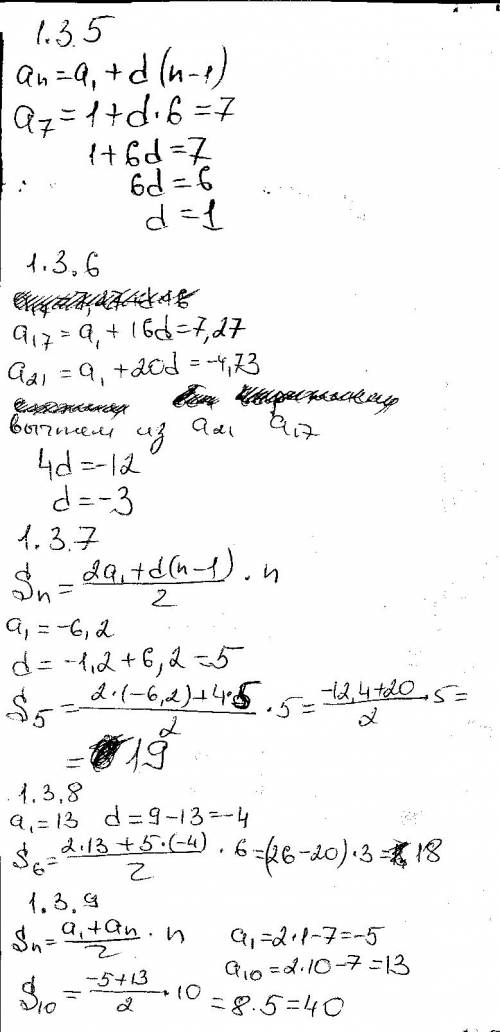 1.3.5
an=a₁+d(n-1)
a₇=1+d·6=7
1+6d=7
6d=6
d=1
1.3.6
a₁₇=a₁+16d=7,27
a₂₁=a₁+20d=-4,73
вычтем из a₂₁ a₁₇
4d=-12
d=-3
1.3.7
Sn=(2a₁+d(n-1))/2·n
a₁=-6,2
d=-1,2+6,2=5
S₅=(2·(-6,2)+4·5)/2·5=(-12,4+20)/2·5=
=19
1.3.8
a₁=13 d=9-13=-4
S₆=(2·13+5·(-4))/2·6=(26-20)·3=18
1.3.9
Sn=(a₁+an)/2·n a₁=2·1-7=-5
a₁₀=2·10-7=13
S₁₀=(-5+13)/2·10=8·5=40